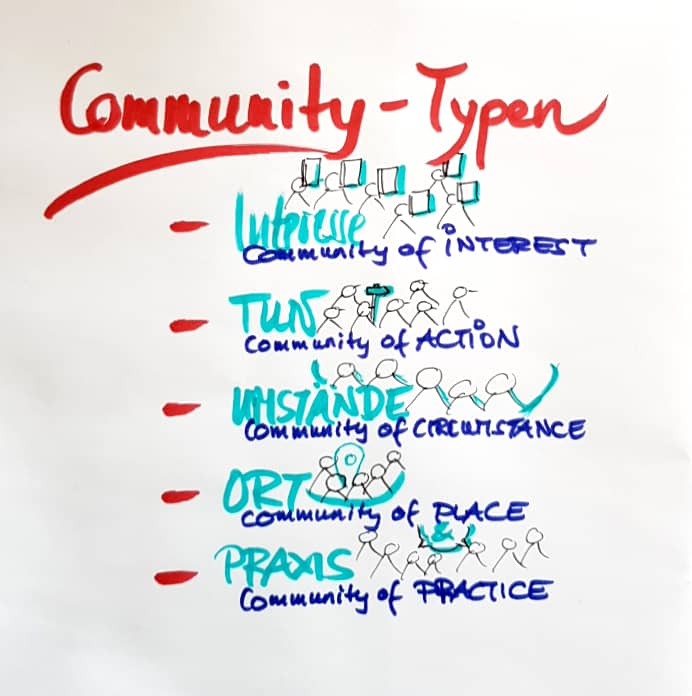 Community - Typen
- Interesse
Community of iNTEREST
- TUN
Community of ACTiON
- UMSTÄNDE
Community of CIRCUMSTANCE
- ORT
Community of PLACE
&
- PRAXIS
Community of PRACTICE